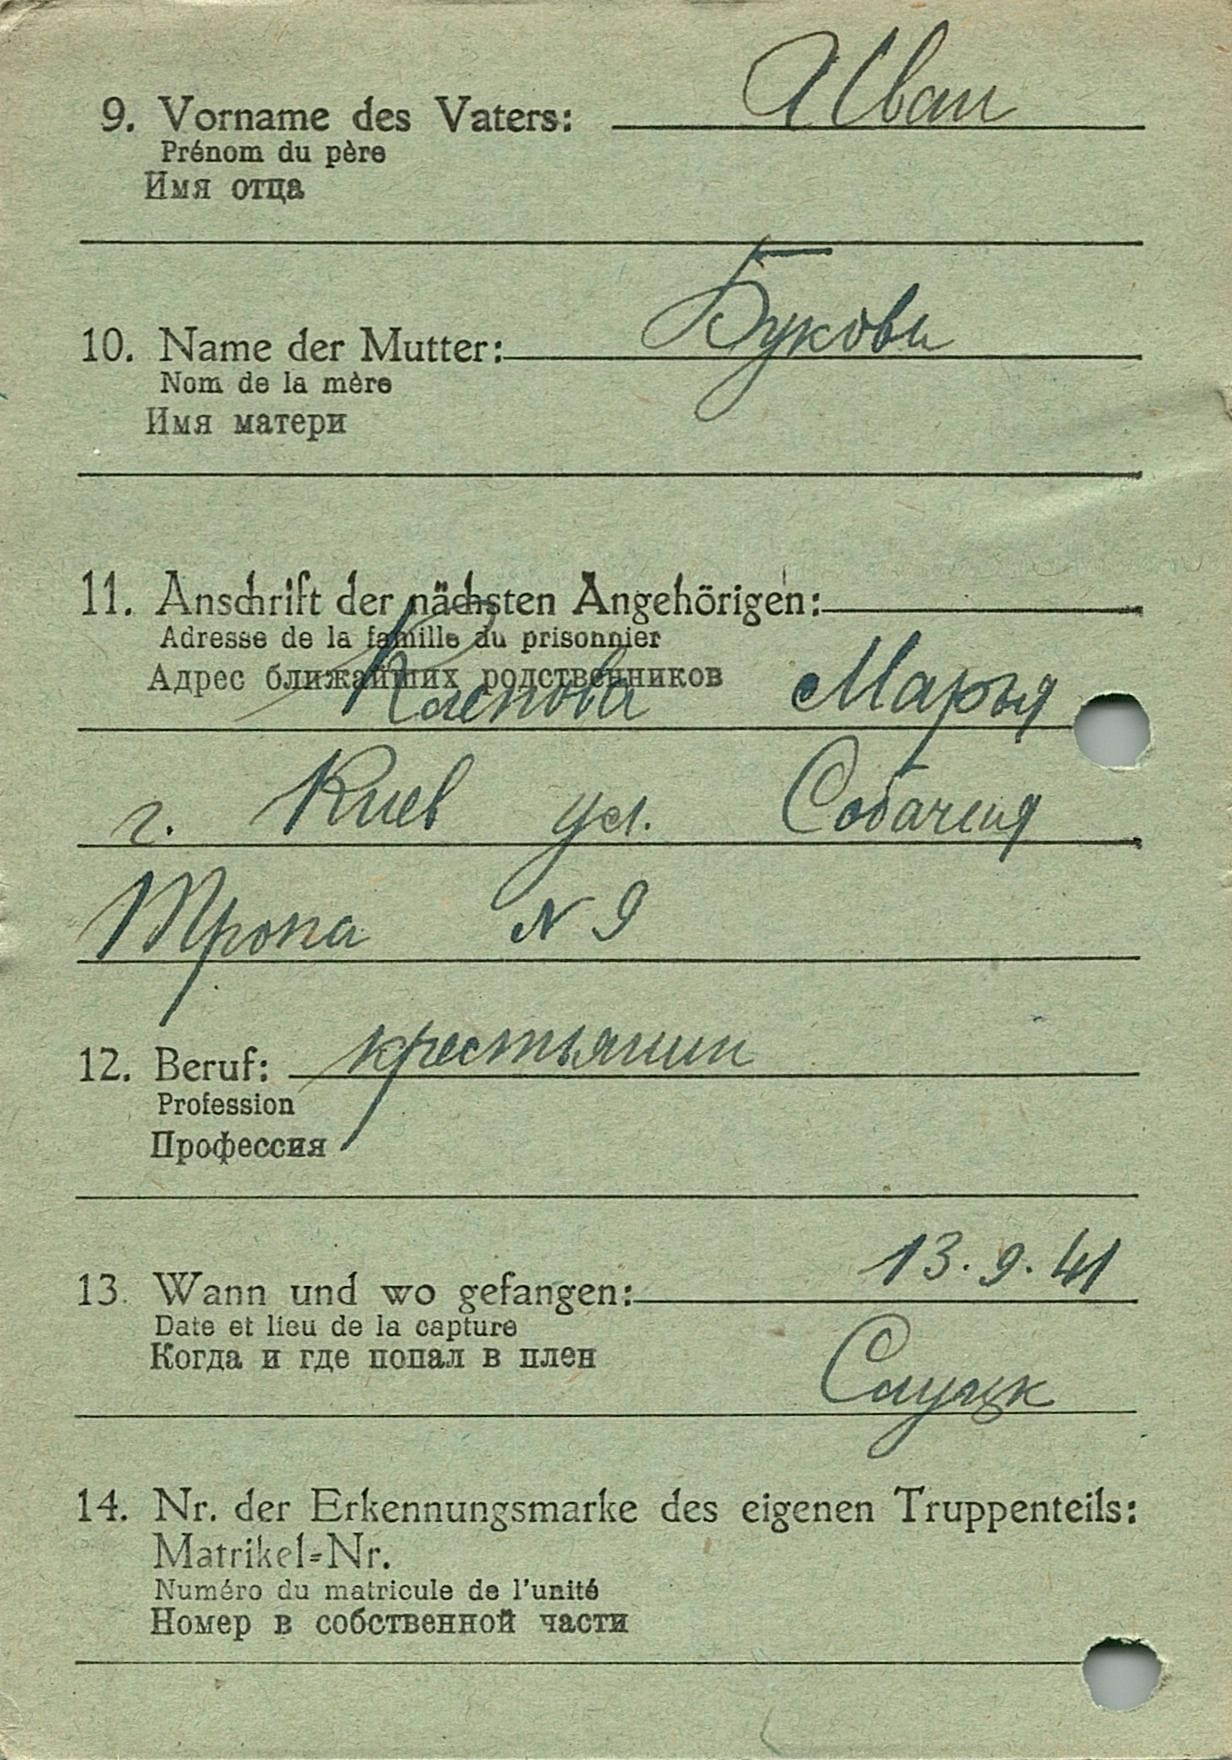 9. Vorname des Vaters: Иван
Prénom du père
Имя отца
10. Name der Mutter:
Nom de la mère
Имя матери
11. Anschrift der nächsten Angehörigen:
Adresse de la famille du prisonnier
Адрес ближайших родственников
Марья
г. Киев ул. Собачия
Тропа N 9
12. Beruf: крестьянин
Profession
Профессия
13. Wann und wo gefangen: 13.9.41
Date et lieu de la capture
Когда и где попал в плен
Слуцк
14. Nr. der Erkennungsmarke des eigenen Truppenteils:
Matrikel=Nr.
Numéro du matricule de l'unité
Номер в собственной части